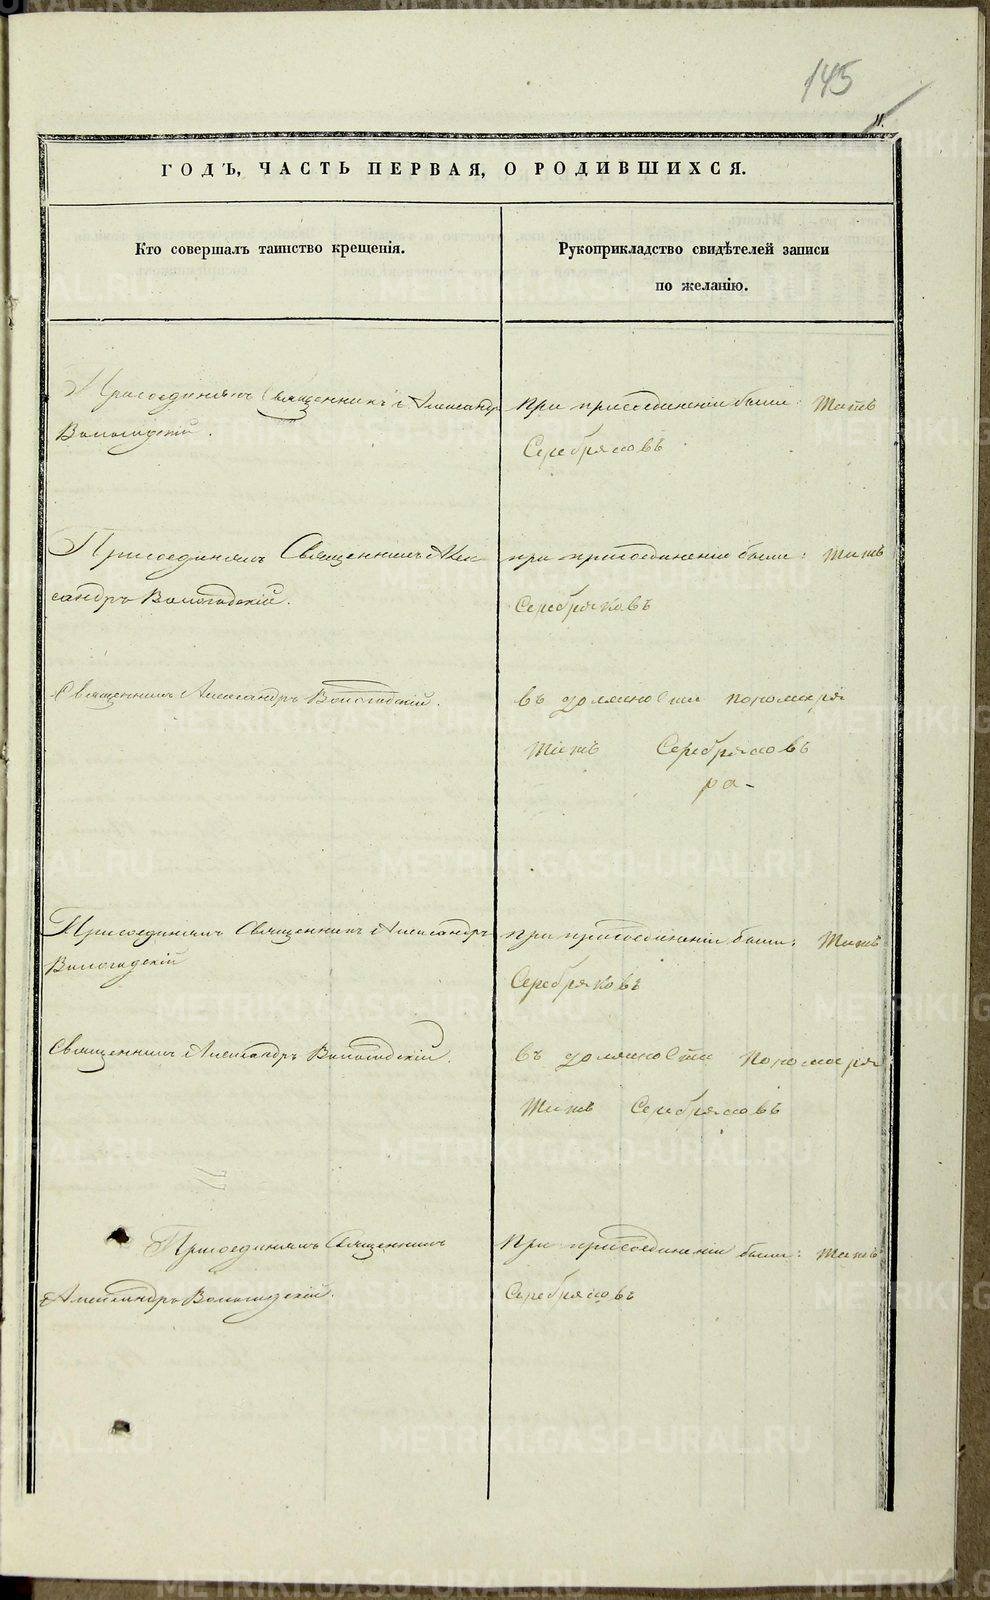 145
11.
ГОДЪ, ЧАСТЬ ПЕРВАЯ, О РОДИВШИХСЯ.
Кто совершалъ таинство крещенія.
Рукоприкладство свидѣтелей записи
по желанію.
Присоединялъ Священникъ Александръ
Вологодскій.
При присоединеніи были: Титъ
Серебряковъ
Присоединялъ Священникъ Алек-
сандръ Вологодскій.
при присоединеніи были: Титъ
Серебряковъ
Священникъ Александръ Вологодскій.
въ должности пономаря
Титъ Серебряковъ
ра-
Присоединялъ Священникъ Александръ
Вологодскій
при присоединеніи были: Титъ
Серебряковъ
Священникъ Александръ Вологодскій.
въ должности пономаря
Титъ Серебряковъ
Присоединялъ Священникъ
Александръ Вологодскій.
При присоединеніи были: Титъ
Серебряковъ
METRIKI.GASO-URAL.RU